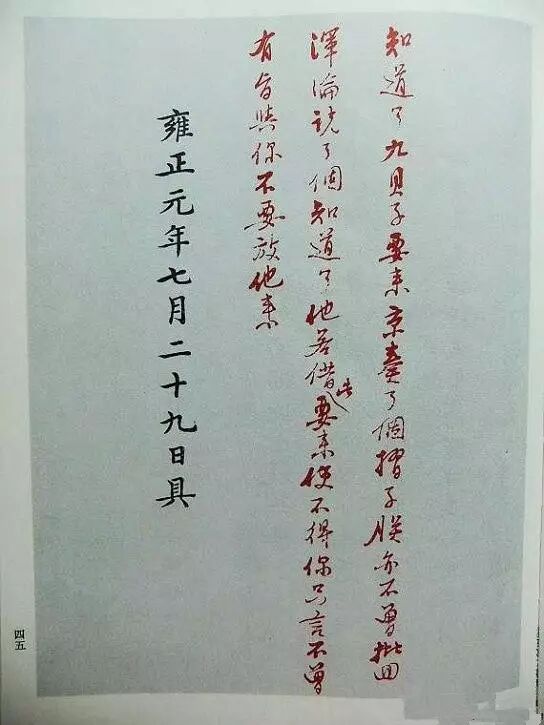 知道了九貝子要来京奏了個摺子朕亦不曾批回
渾淪説了個知道了他若借此要来使不得你只言不曾
有旨與你不要放他来
雍正元年七月二十九日具
四五